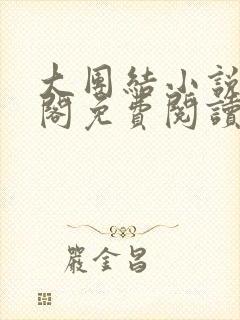 大團結小說
閣免費閱讀
嚴金昌